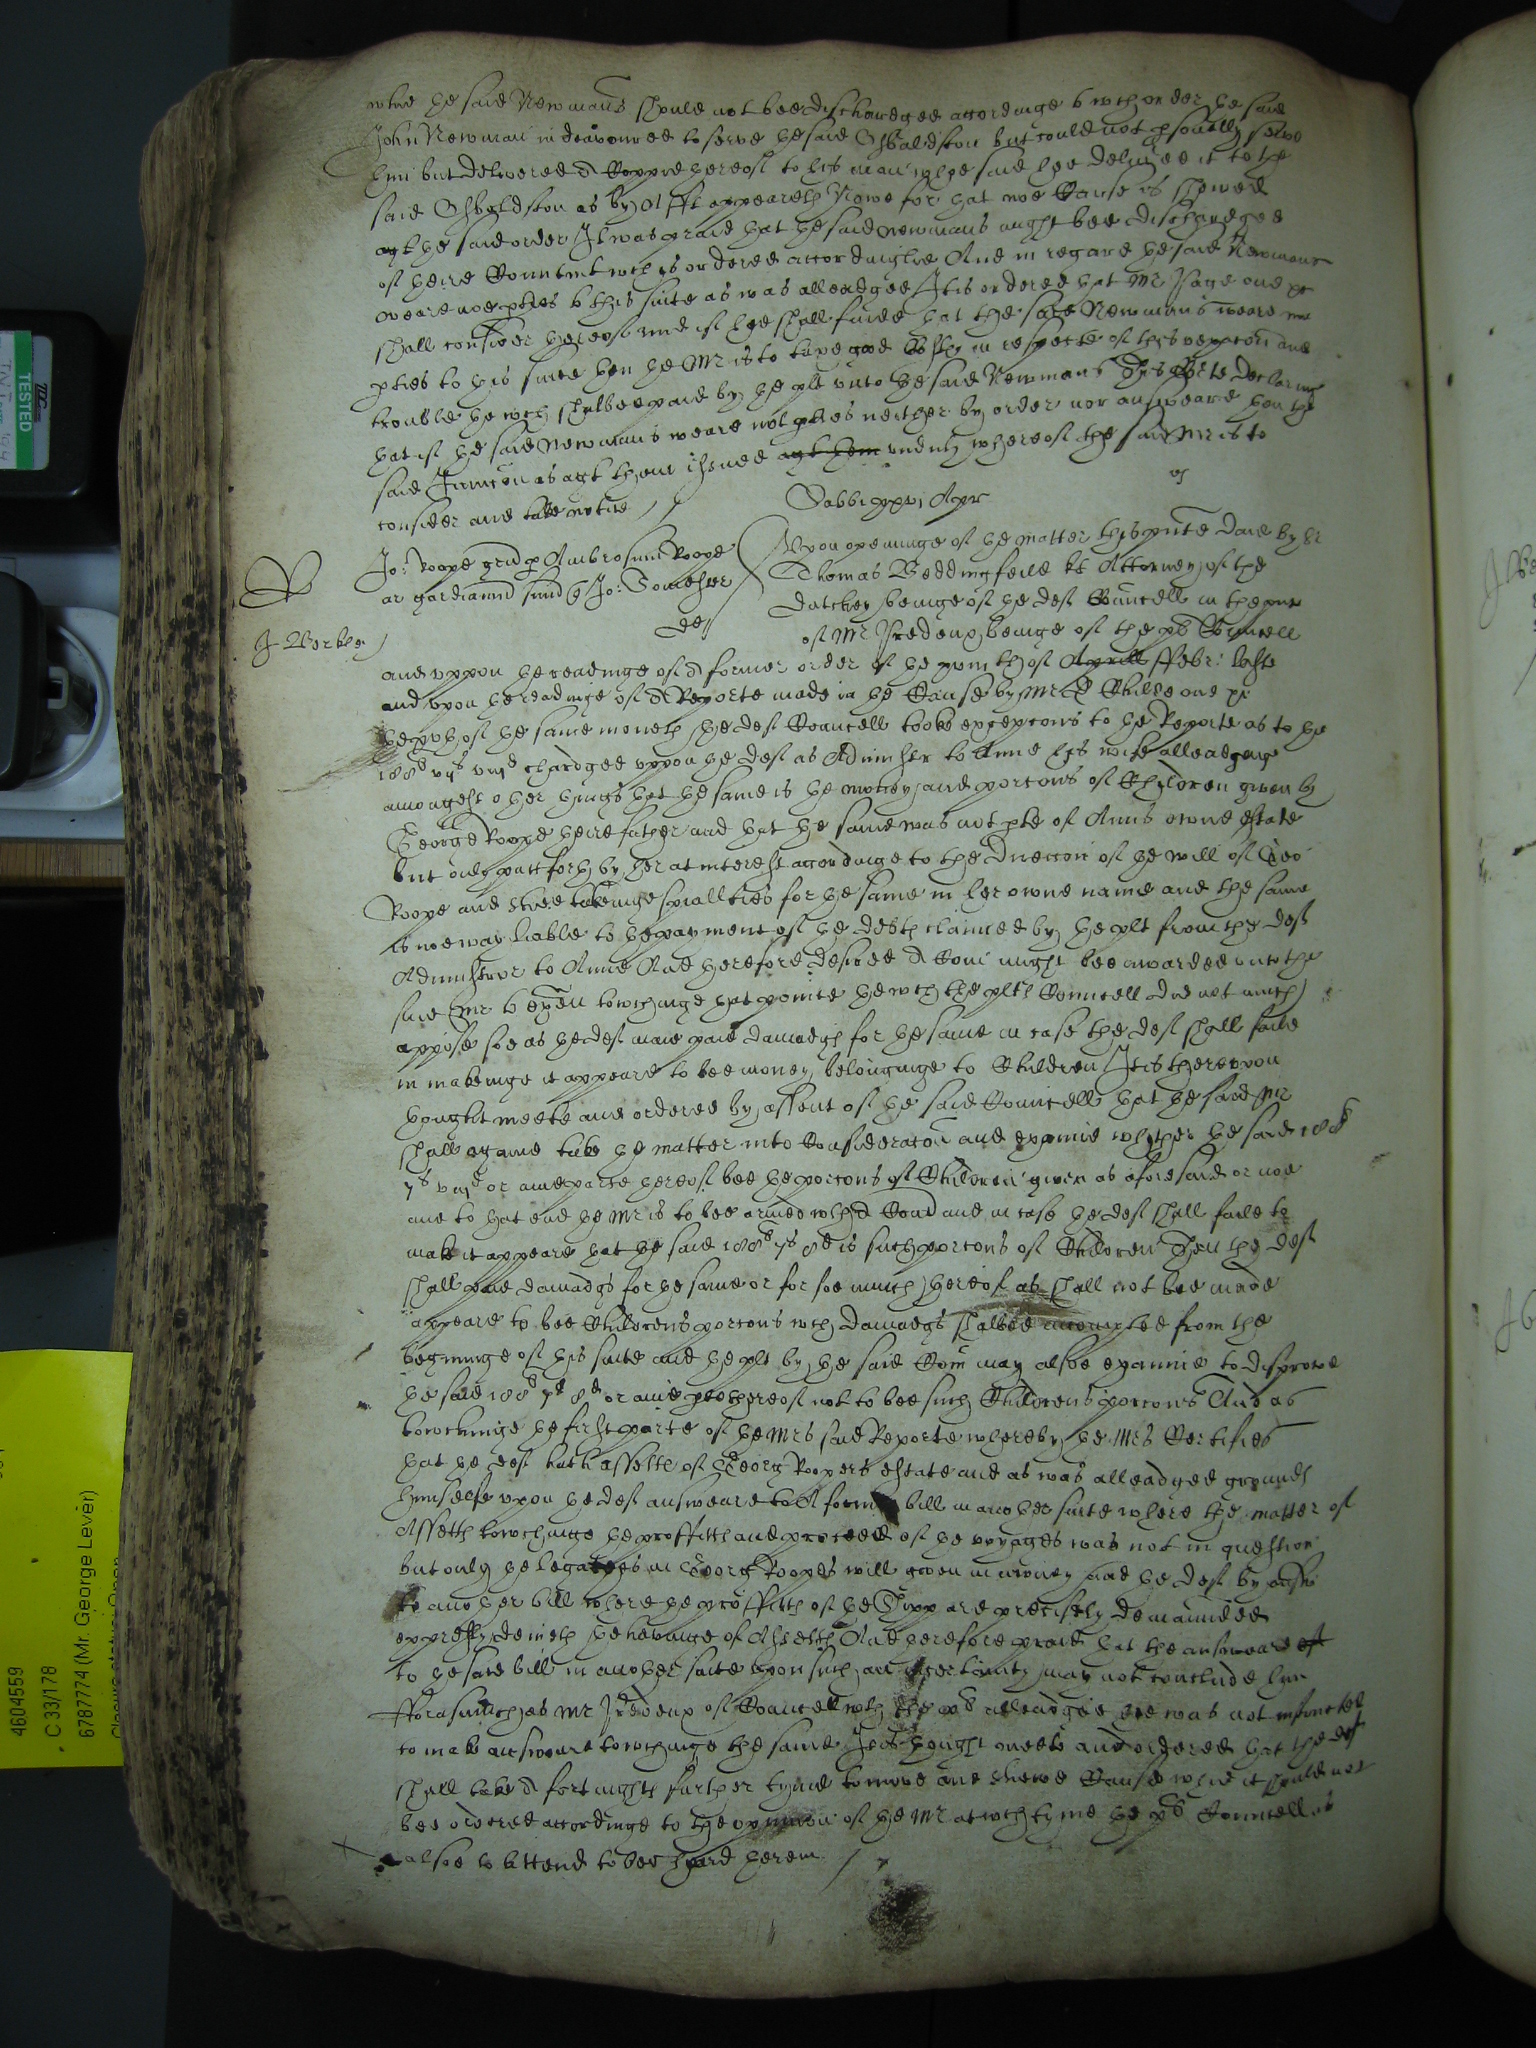 whie he said Newmans should not bee dischardged accordinge to wch order he said
John Newman indeavoured to serve he said Shaldston but could not psonally serve
him but delivered a Coppie hereof to his man whoe said hee delivered it to the
said Shaldston as by Afft appeareth Nowe for hat noe Cause is shewed
agt he said order It was praid hat he said Newmans might bee dischardged
of heire Contemt wch is ordered accordinglie And in regard he said Newmans
weare noe pties to this suite as was alleadged It is ordered hat Mr Page one &c
shall consider hereof and if hee shall finde hat the said Newmans weare no
pties to his suite hen he Mr is to taxe good Costs in respecte of this vexacon and
trouble he wch shalbee paid by he plt unto he said Newmans declaringe
hat if he said Newmans weare not pties neither by order nor answeare hen the
said as agt them issued agt hem unduly whereof the said Mr is to
consider and take notice
Sabbi xxvi Apr
Jo: Roope gen p Ambrosium Roope
ar gardianum suum Jo: Tomeshew
de
J Berkley
Upon openinge of he matter this pnte daie by Sr
Thomas Beddingfeild kt Attorney of the
Dutchey beinge of he def Councell in the pnce
of Mr Prideaux beinge of the pls Councell
and uppon he readinge of a former order of he xviijth of Aprill ffebr: laste
and upon he readinge of a Reporte made in he Cause by Mr Childe one &c
he of he same moneth he def Councell tooke excepcons to he Reporte as to he
188l vijs viijd chardged uppon he def as Administer to Anne his wife alleadginge
amongest oher hings hat he same is he money and porcons of Children given by
George Roope heire father and hat he same was not pte of Anns owne estate
but only putt forth by her at interest accordinge to the direccon of he will of Geo
Roope and shee takeinge spialties for he same in her owne name and the same
is noe way liable to he payment of he debts claimed by he plt from the def
Administer to Anne And herefore desired a Com might bee awarded unto the
said Mr to exaen towchinge hat pointe he wch the plts Councell did not much
oppose soe as he def maie paie damadgs for he same in case the def shall faile
in makeinge it appeare to bee money belonginge to Children It is thereupon
hought meete and ordered by assent of he said Councell hat he said Mr
shall againe take he matter into Consideracon and examine whether he said 188l
7s viijd or anie parte hereof bee he porcons of Children given as aforesaid or noe
and to hat end he Mr is to bee armed wth a Com and in case he def shall faile to
make it appeare hat he said 188l 7s 8d is such porcons of Children Then the def
shall paie damadgs for he same or for soe much hereof as shall not bee made
appeare to bee Childrens porcons wch damadgs shalbee accompted from the
begininge of his suite and he plt by he said Com may alsoe examine to disprove
he said 188l 7s 8d or anie pte hereof not to bee such Childrens porcons And as
towchinge he first parte of he Mrs said Reporte whereby he Mrs Certifies
hat he def hath assetts of Georg Roopers estate and as was alleadged grounds
himselfe upon he def answeare to a former bill in anoher suite where the matter of
Assetts towchinge he proffitts and proceed of he voyages was not in question
but only he legacyes in Georg Roopes will given in money and he def by answ
to anoher bill where he proffitts of he Shipp are precisely demaunded
expressly denieth he haveinge of Assetts And herefore praid hat the answeare of
to he said bill in anoher suite upon such an incertainty may not conclude him
fforasmuch as Mr Prideux of Councell wth the pls alleadged hee was not instructed
to make answeare towchinge the same It is hought meete and ordered hat the def
shall take a fortnights further tyme to move and shewe Cause whie it should not
bee ordered accordinge to the opinion of he Mr at wch tyme he pls Councell is
alsoe to attend to bee heard herein
TESTED
4604559
C 33/178
6787774 (Mr. George Lever)